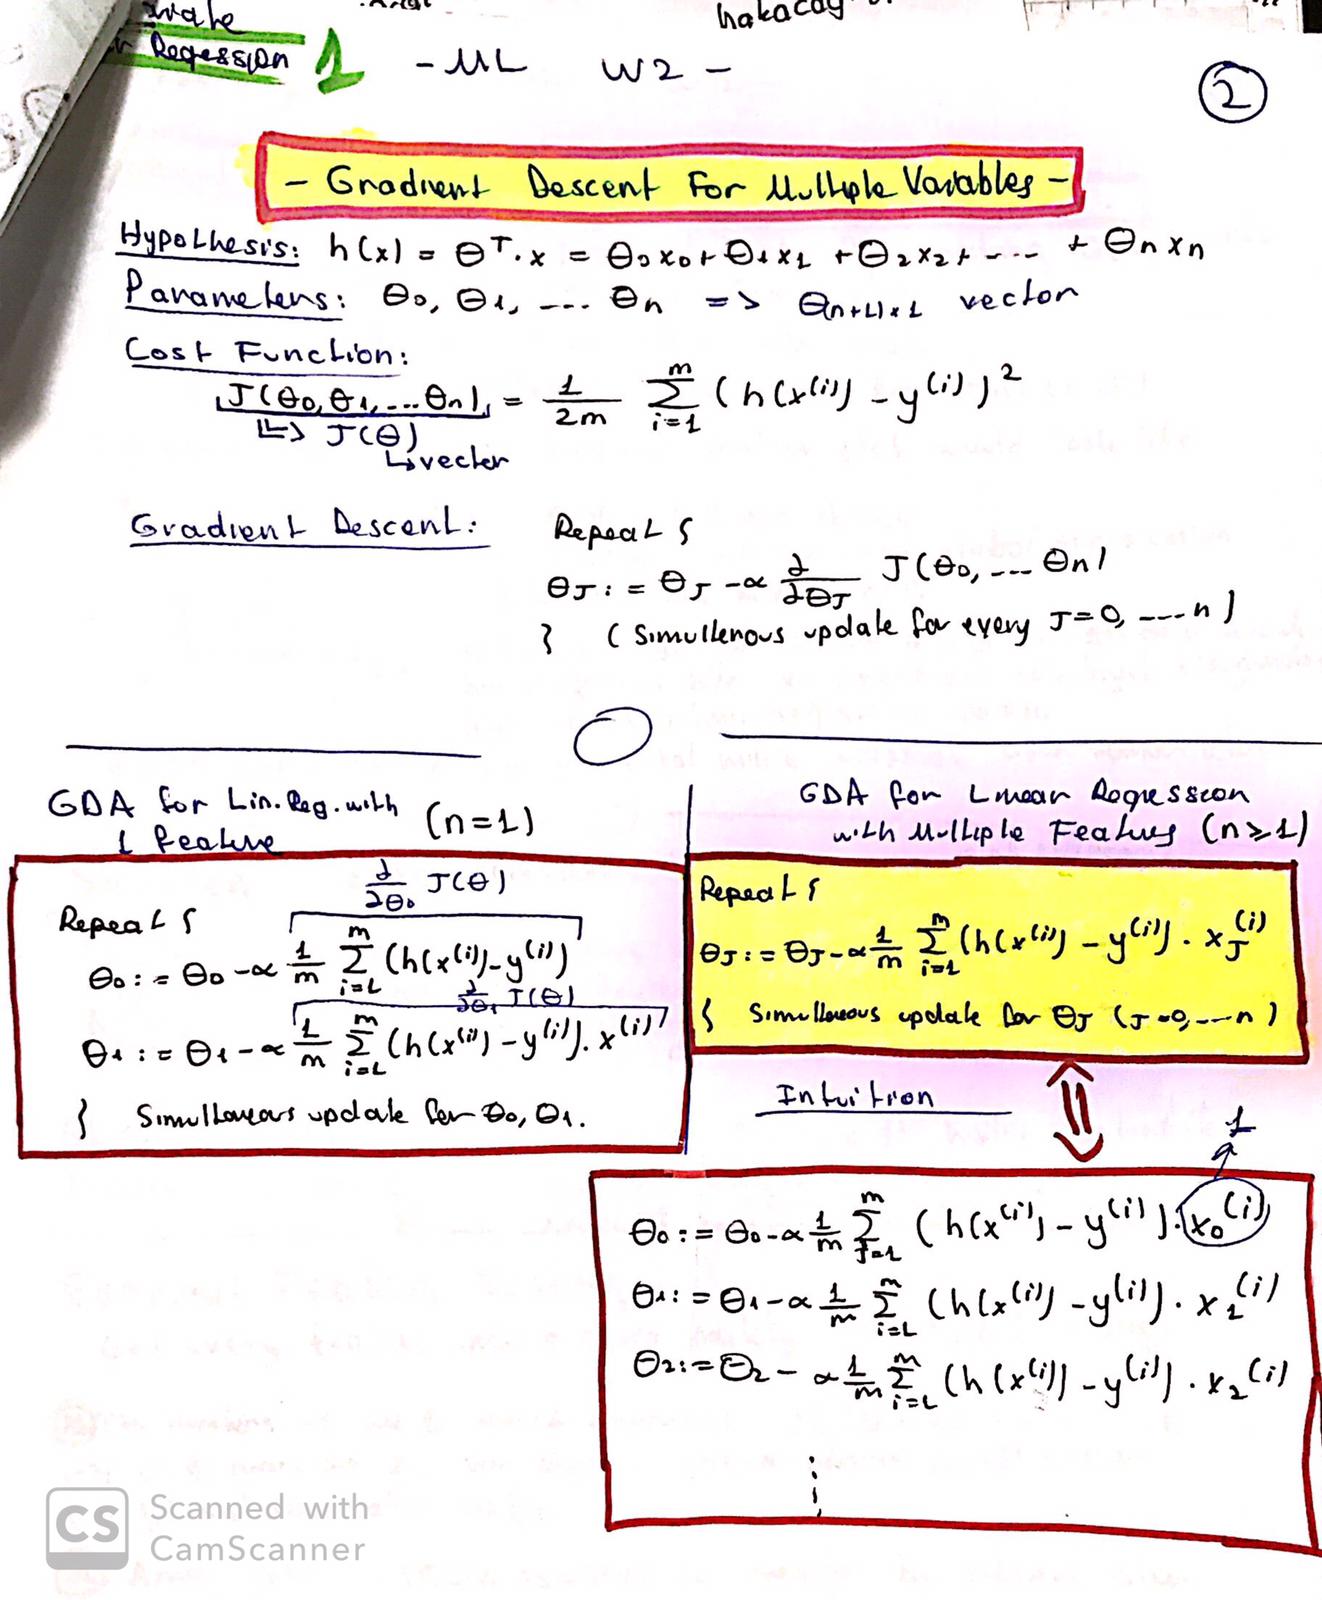 Regession 1 - ML W2 -
2
- Gradient Descent For Multiple Variables -
Hypothesis: h(x) = θᵀ.x = θ₀x₀ + θ₁x₁ + θ₂x₂ + .... + θₙxₙ
Parameters: θ₀, θ₁, .... θₙ => θ₍ₙ₊₁₎ₓ₁ vector
Cost Function:
J(θ₀, θ₁, ... θₙ) = 1/2m Σᵢ₌₁ᵐ (h(x⁽ⁱ⁾) - y⁽ⁱ⁾)²
↳ J(θ)
↳ vector
Gradient Descent: Repeat {
θJ := θJ - α ∂/∂θJ J(θ₀, .... θₙ)
} (Simultenous update for every J=0, ....n)
GDA for Lin. Reg. with (n=1)
1 feature
∂/∂θ₀ J(θ)
Repeat {
θ₀ := θ₀ - α 1/m Σᵢ₌₁ᵐ (h(x⁽ⁱ⁾) - y⁽ⁱ⁾)
∂/∂θ₁ J(θ)
θ₁ := θ₁ - α 1/m Σᵢ₌₁ᵐ (h(x⁽ⁱ⁾) - y⁽ⁱ⁾). x⁽ⁱ⁾
} Simultaneous update for θ₀, θ₁.
GDA for Linear Regression
with Multiple Features (n≥1)
Repeat {
θJ := θJ - α 1/m Σᵢ₌₁ᵐ (h(x⁽ⁱ⁾) - y⁽ⁱ⁾) . xJ⁽ⁱ⁾
} Simultaneous update for θJ (J=0, ...n)
Intuition
1
θ₀ := θ₀ - α 1/m Σⱼ₌₁ᵐ (h(x⁽ⁱ⁾) - y⁽ⁱ⁾) . x₀⁽ⁱ⁾
θ₁ := θ₁ - α 1/m Σᵢ₌₁ᵐ (h(x⁽ⁱ⁾) - y⁽ⁱ⁾) . x₁⁽ⁱ⁾
θ₂ := θ₂ - α 1/m Σᵢ₌₁ᵐ (h(x⁽ⁱ⁾) - y⁽ⁱ⁾) . x₂⁽ⁱ⁾
CS Scanned with
CamScanner